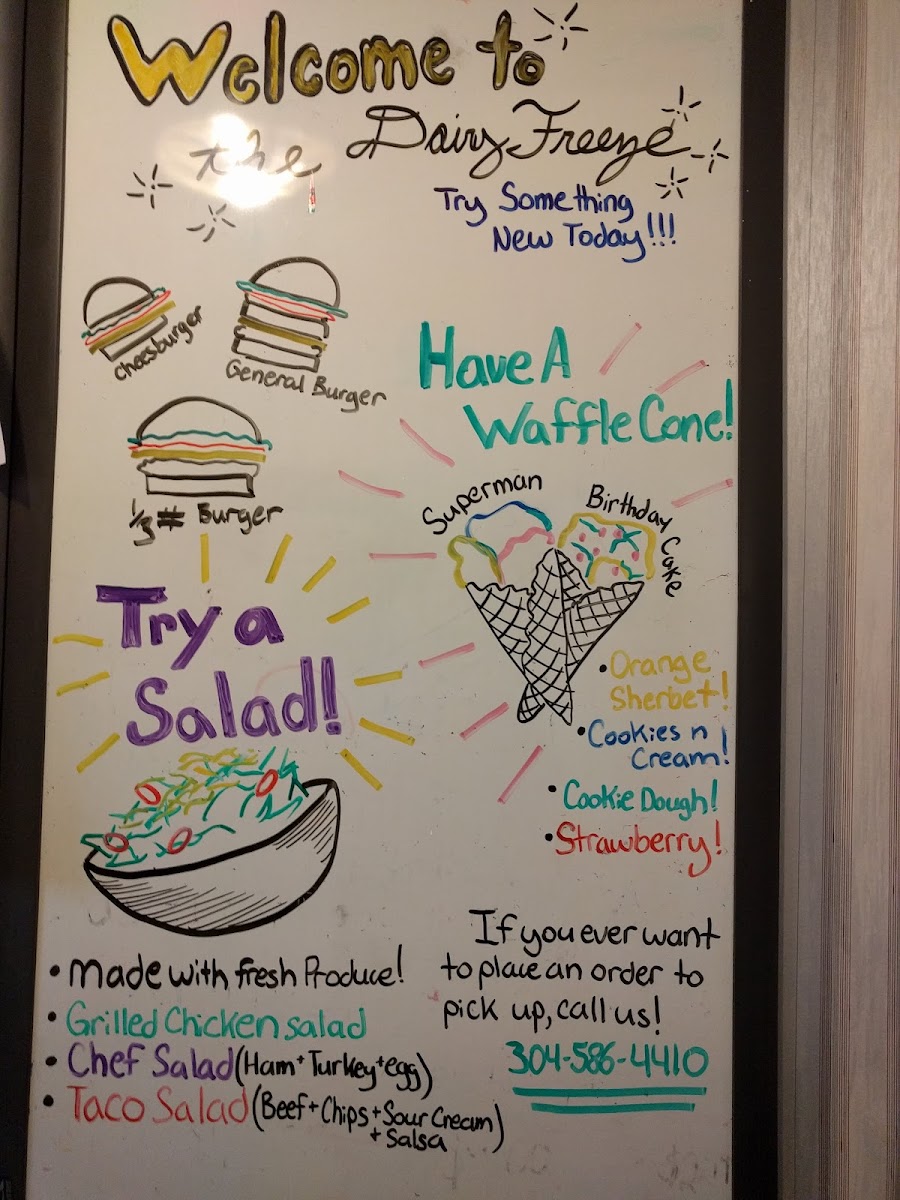 Welcome to
the Dairy Freeze
Try Something
New Today!!!
cheesburger
General Burger
1/3# Burger
Have A
Waffle Cone!
Superman
Birthday Cake
• Orange
Sherbet!
• Cookies n
Cream!
• Cookie Dough!
• Strawberry!
Try a
Salad!
• Made with fresh Produce!
• Grilled Chicken salad
• Chef Salad (Ham+Turkey+egg)
• Taco Salad (Beef+Chips+Sour Cream
+Salsa)
If you ever want
to place an order to
pick up, call us!
304-586-4410